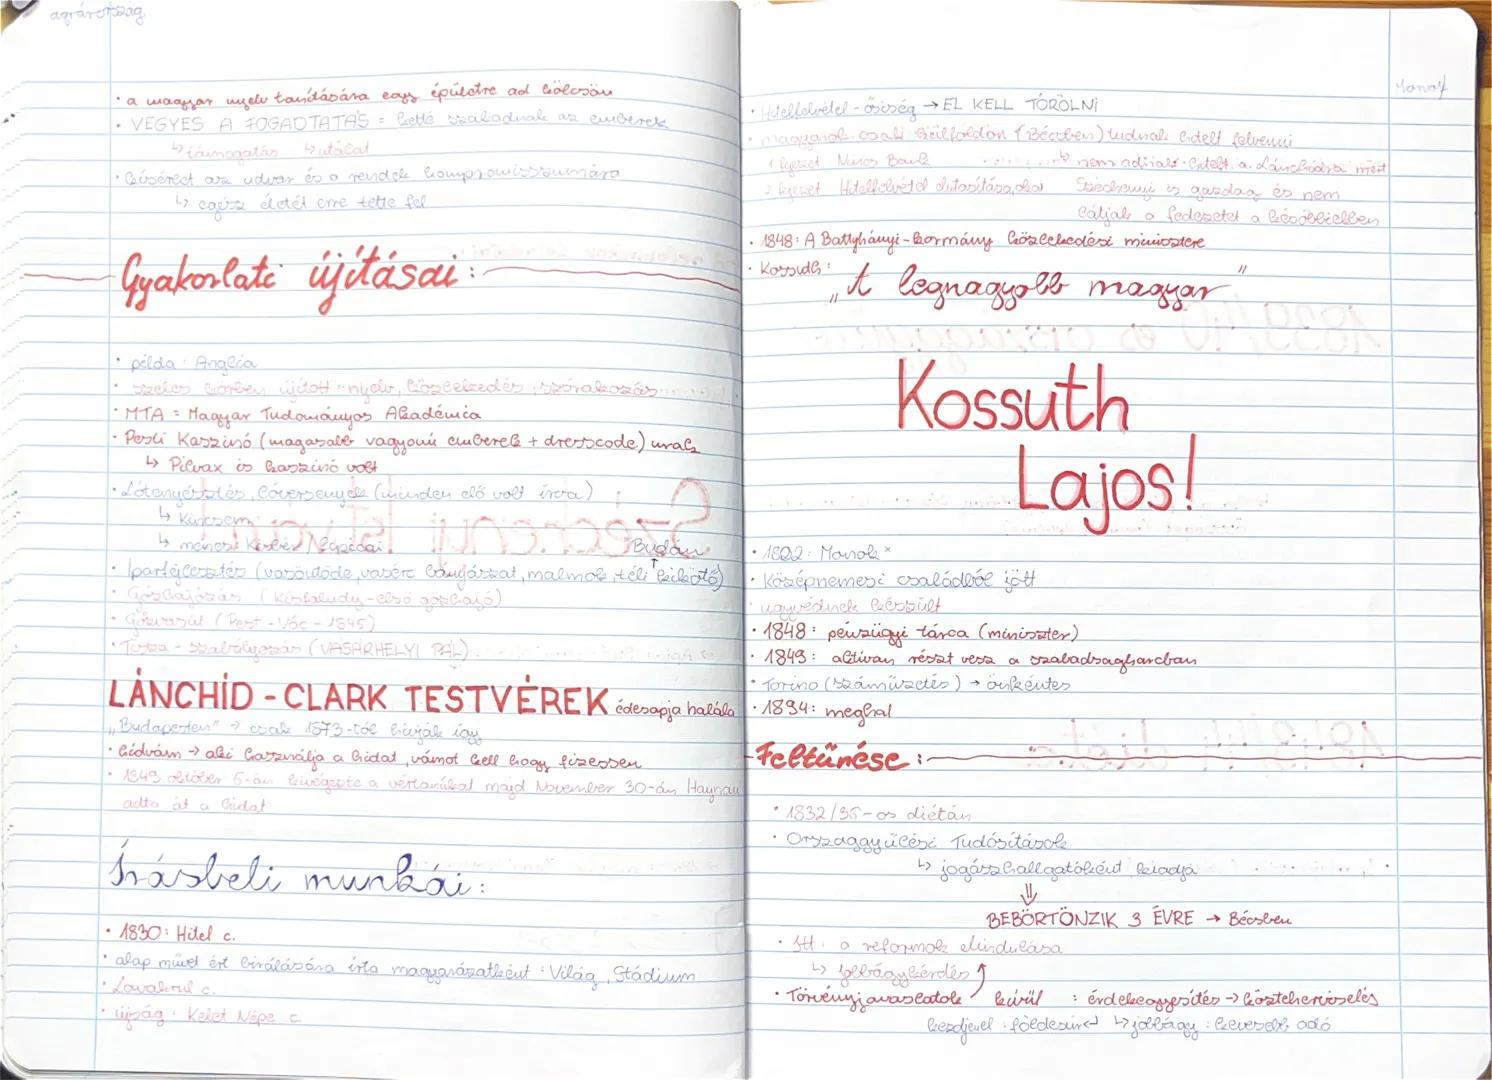 agrárország
· a magyar nyelv tanítására egy épületre ad kölcsön
· VEGYES A FOGADTATÁS = ketté szakadnak az emberek
↳ támogatás ↳ utálat
· kísérlet az udvar és a rendek kompromisszumára
↳ egész életét erre tette fel
Gyakorlati újításai:
· példa: Anglia
· széles körben újított: nyelv, közlekedés, szórakozás
· MTA = Magyar Tudományos Akadémia
· Pesti Kaszinó (magasabb vagyonú emberek + dresscode) urak
↳ Pilvax is kaszinó volt
· Lótenyésztés, lóversenyek (minden élő volt írva)
↳ Kincsem
↳ ménesi Kisbér
Budán
↑
· Iparfejlesztés (vasöntöde, vasérc bányászat, malmok, téli kikötő)
· Gőzhajózás (Kisfaludy - első gőzhajó)
· Gőzvasút (Pest - Vác - 1845)
· Tisza - szabályozás (VÁSÁRHELYI PÁL)
LÁNCHÍD - CLARK TESTVÉREK édesapja halála
„Budapesten" → csak 1873-tól hívják így
· hídvám → aki használja a hidat, vámot kell hogy fizessen
· 1849 október 6-án kivégezte a vértanúkat majd November 30-án Haynau
adta át a hidat
Írásbeli munkái:
· 1830: Hitel c.
· alap művet ért bírálására írta magyarázatként: Világ, Stádium
· Lovakrul c.
· újság: Kelet Népe c.
· Hitelfelvétel - ősiség → EL KELL TÖRÖLNI
· magyarok csak külföldön (Bécsben) tudnak hitelt felvenni
1 fejezet Nincs Bank ↳ nem adnak hitelt a Lánchídra mert
2 fejezet Hitelfelvétel elutasítása, oka Széchenyi is gazdag és nem
látják a fedezetet a későbbiekben
· 1848: A Batthyányi-kormány közlekedési minisztere
· Kossuth: „A legnagyobb magyar"
Kossuth
Lajos!
Monok
· 1802: Monok *
· Középnemesi családból jött
· ügyvédnek készült
· 1848: pénzügyi tárca (miniszter)
· 1849: aktívan részt vesz a szabadságharcban
· Torino (száműzetés) → önkéntes
· 1894: meghal
Feltűnése:
· 1832/36-os diétán
· Országgyűlési Tudósítások
↳ jogászhallgatóként kiadja
⇓
BEBÖRTÖNZIK 3 ÉVRE → Bécsben
· Itt: a reformok elindulása
↳ jobbágykérdés ↑
· Törvényjavaslatok kívül : érdekegyesítés → közteherviselés
kezdjenel: földesúr ↲ ↳ jobbágy: kevesebb adó